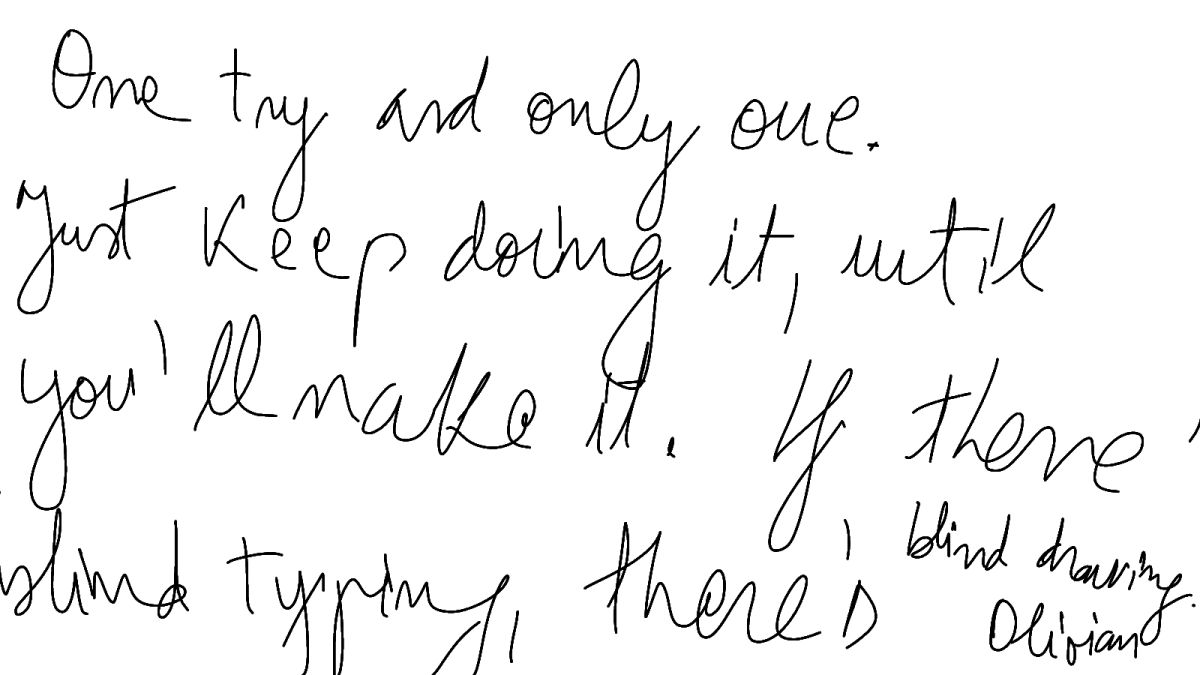 One try and only one.
Just keep doing it, until
you'll make it. If there'
blind typing, there's
blind drawing.
Olivian